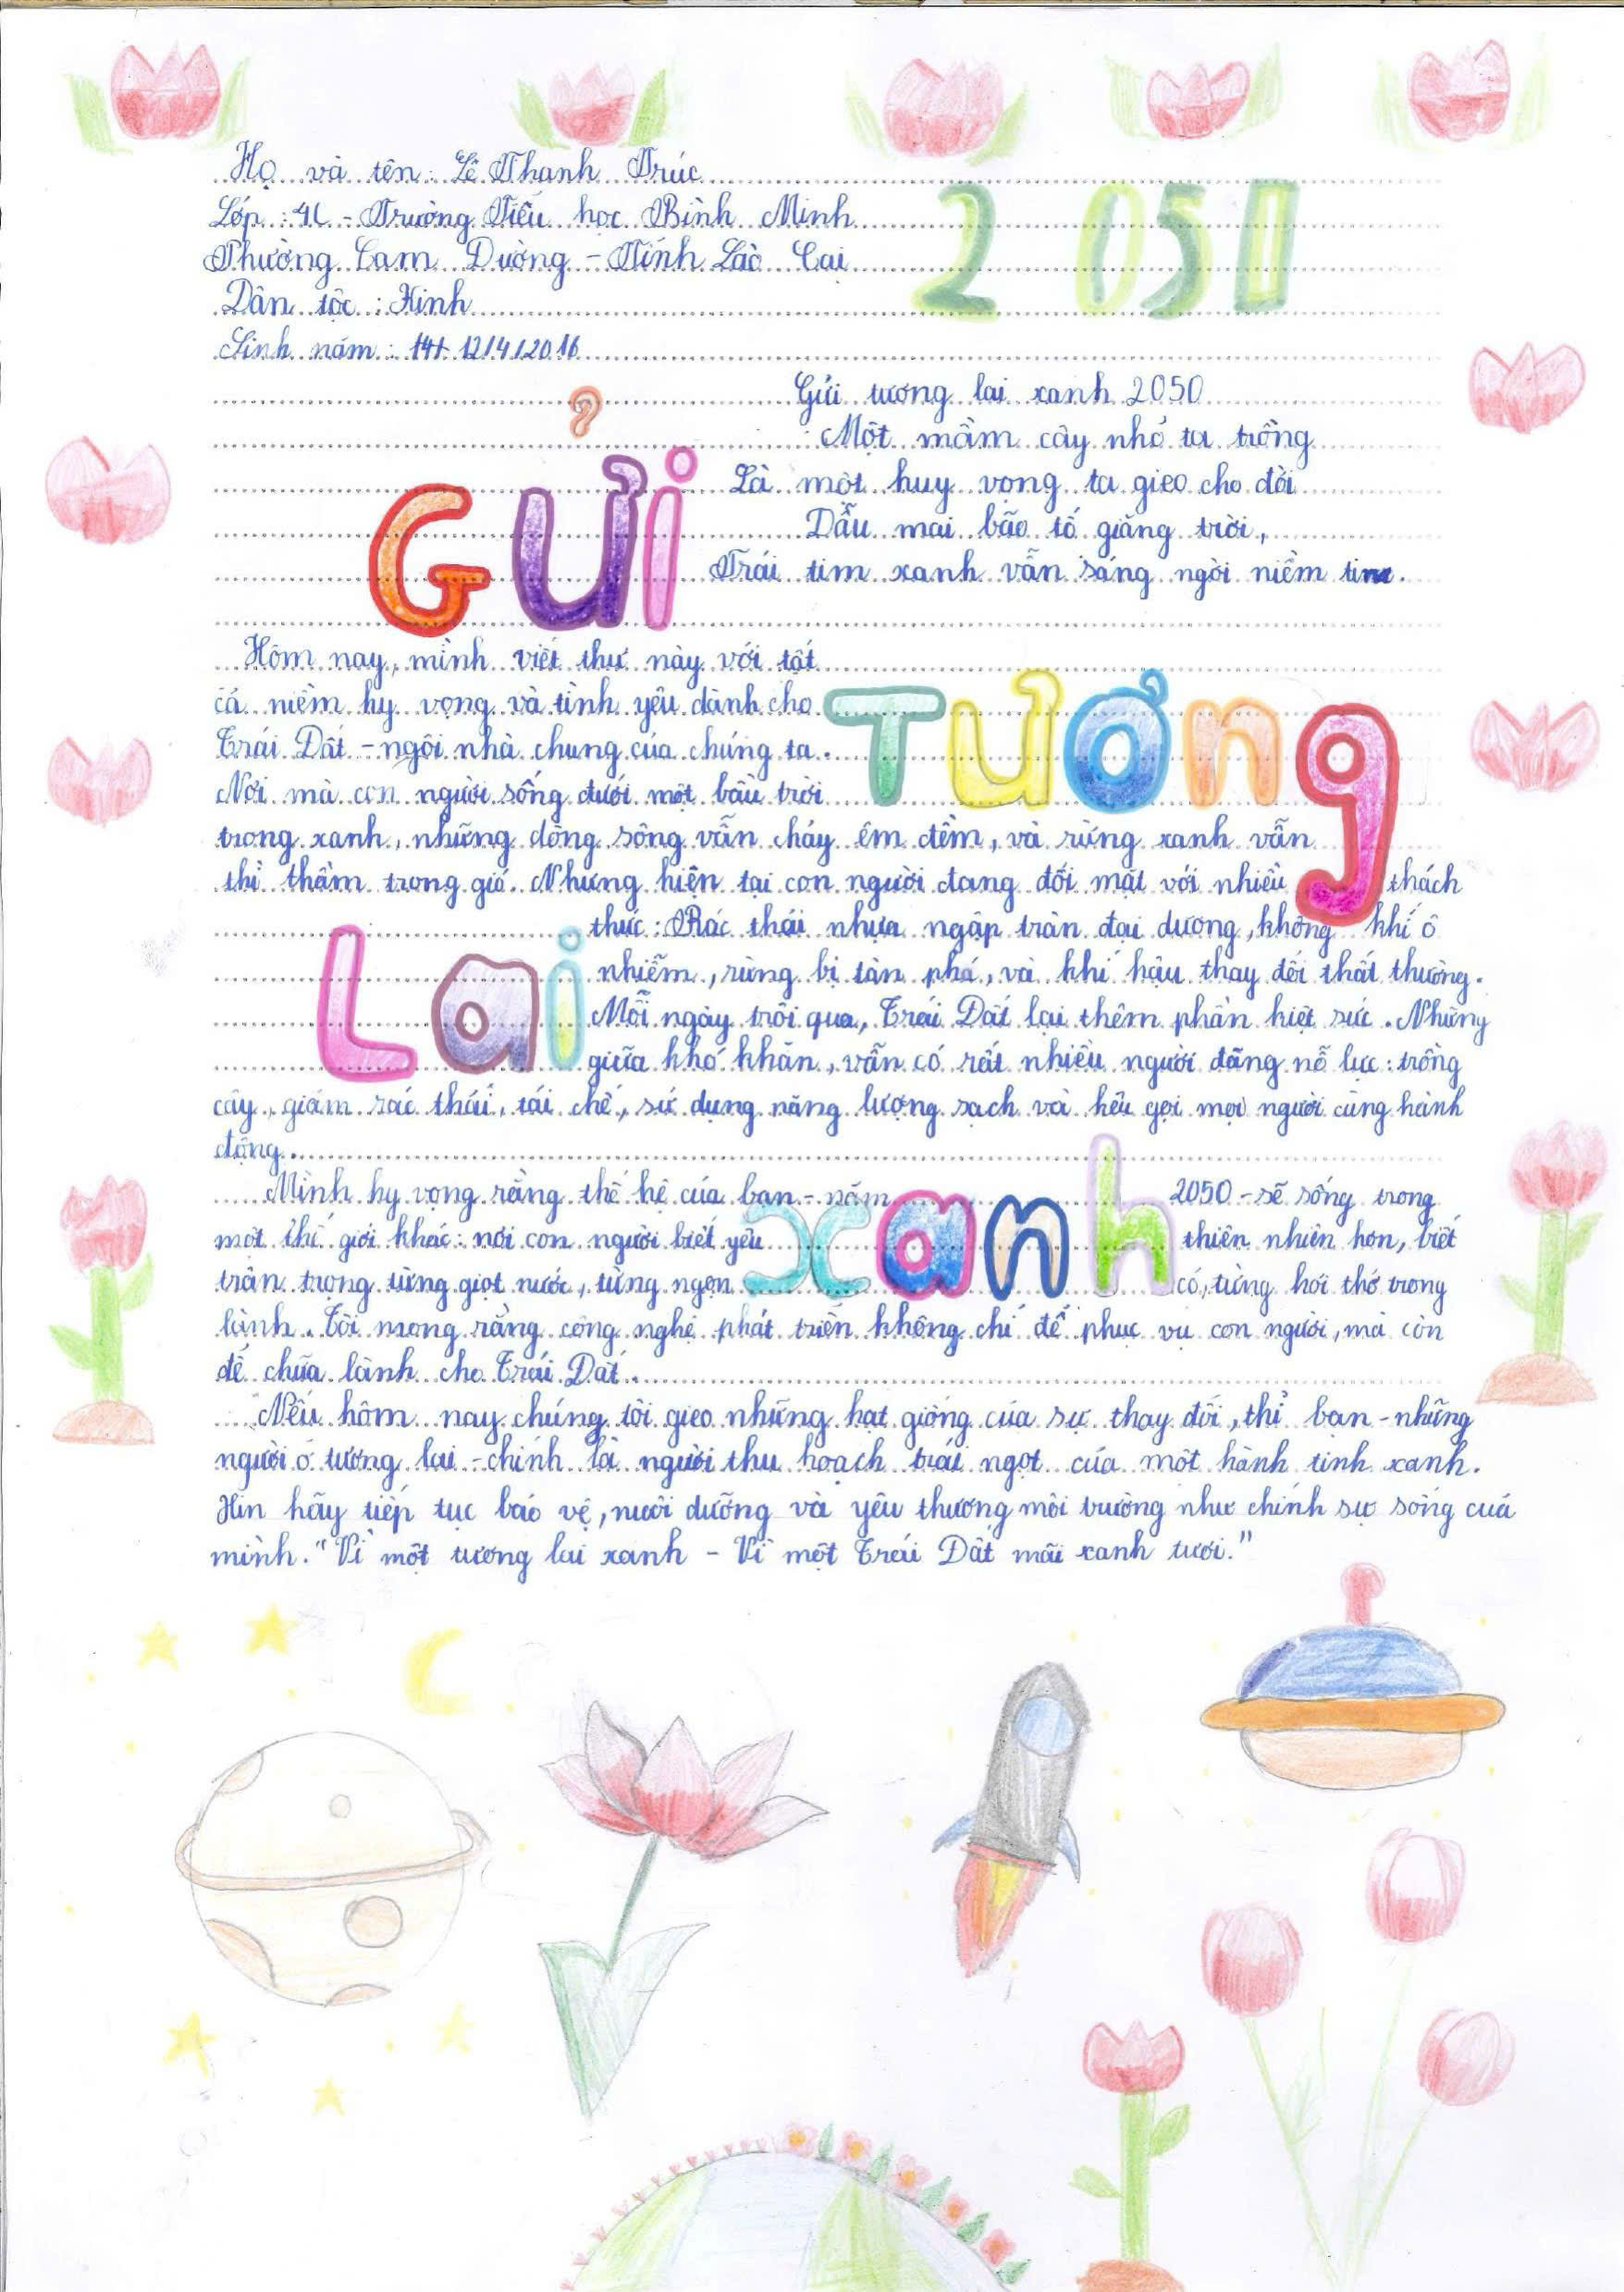 Họ và tên: Lê Thanh Trúc
Lớp: 4C - Trường Tiểu học Bình Minh
Phường Cam Đường - Tỉnh Lào Cai
Dân tộc: Kinh
Sinh năm: 12/4/2016
2050
Gửi tương lai xanh 2050
Một mầm cây nhỏ ta trồng
Là một huy vọng ta gieo cho đời
Dẫu mai bão tố giăng trời,
Trái tim xanh vẫn sáng ngời niềm tin.
Gửi
Hôm nay, mình viết thư này với tất
cả niềm hy vọng và tình yêu dành cho
Trái Đất - ngôi nhà chung của chúng ta.
Nơi mà con người sống dưới một bầu trời
Tương
trong xanh, những dòng sông vẫn chảy êm đềm, và rừng xanh vẫn
thì thầm trong gió. Nhưng hiện tại con người đang đối mặt với nhiều thách
Lai
thức: Rác thải nhựa ngập tràn đại dương, không khí ô
nhiễm, rừng bị tàn phá, và khí hậu thay đổi thất thường.
Mỗi ngày trôi qua, Trái Đất lại thêm phần kiệt sức. Nhưng
giữa khó khăn, vẫn có rất nhiều người đang nỗ lực: trồng
cây, giảm rác thải, tái chế, sử dụng năng lượng sạch và kêu gọi mọi người cùng hành
động.
Mình hy vọng rằng thế hệ của bạn - năm 2050 - sẽ sống trong
một thế giới khác: nơi con người biết yêu thiên nhiên hơn, biết
xanh
trân trọng từng giọt nước, từng ngọn cỏ, từng hơi thở trong
lành. Tôi mong rằng công nghệ phát triển không chỉ để phục vụ con người, mà còn
để chữa lành cho Trái Đất.
Nếu hôm nay chúng tôi gieo những hạt giống của sự thay đổi, thì bạn - những
người ở tương lai - chính là người thu hoạch trái ngọt của một hành tinh xanh.
Xin hãy tiếp tục bảo vệ, nuôi dưỡng và yêu thương môi trường như chính sự sống của
mình. "Vì một tương lai xanh - Vì một Trái Đất mãi xanh tươi."